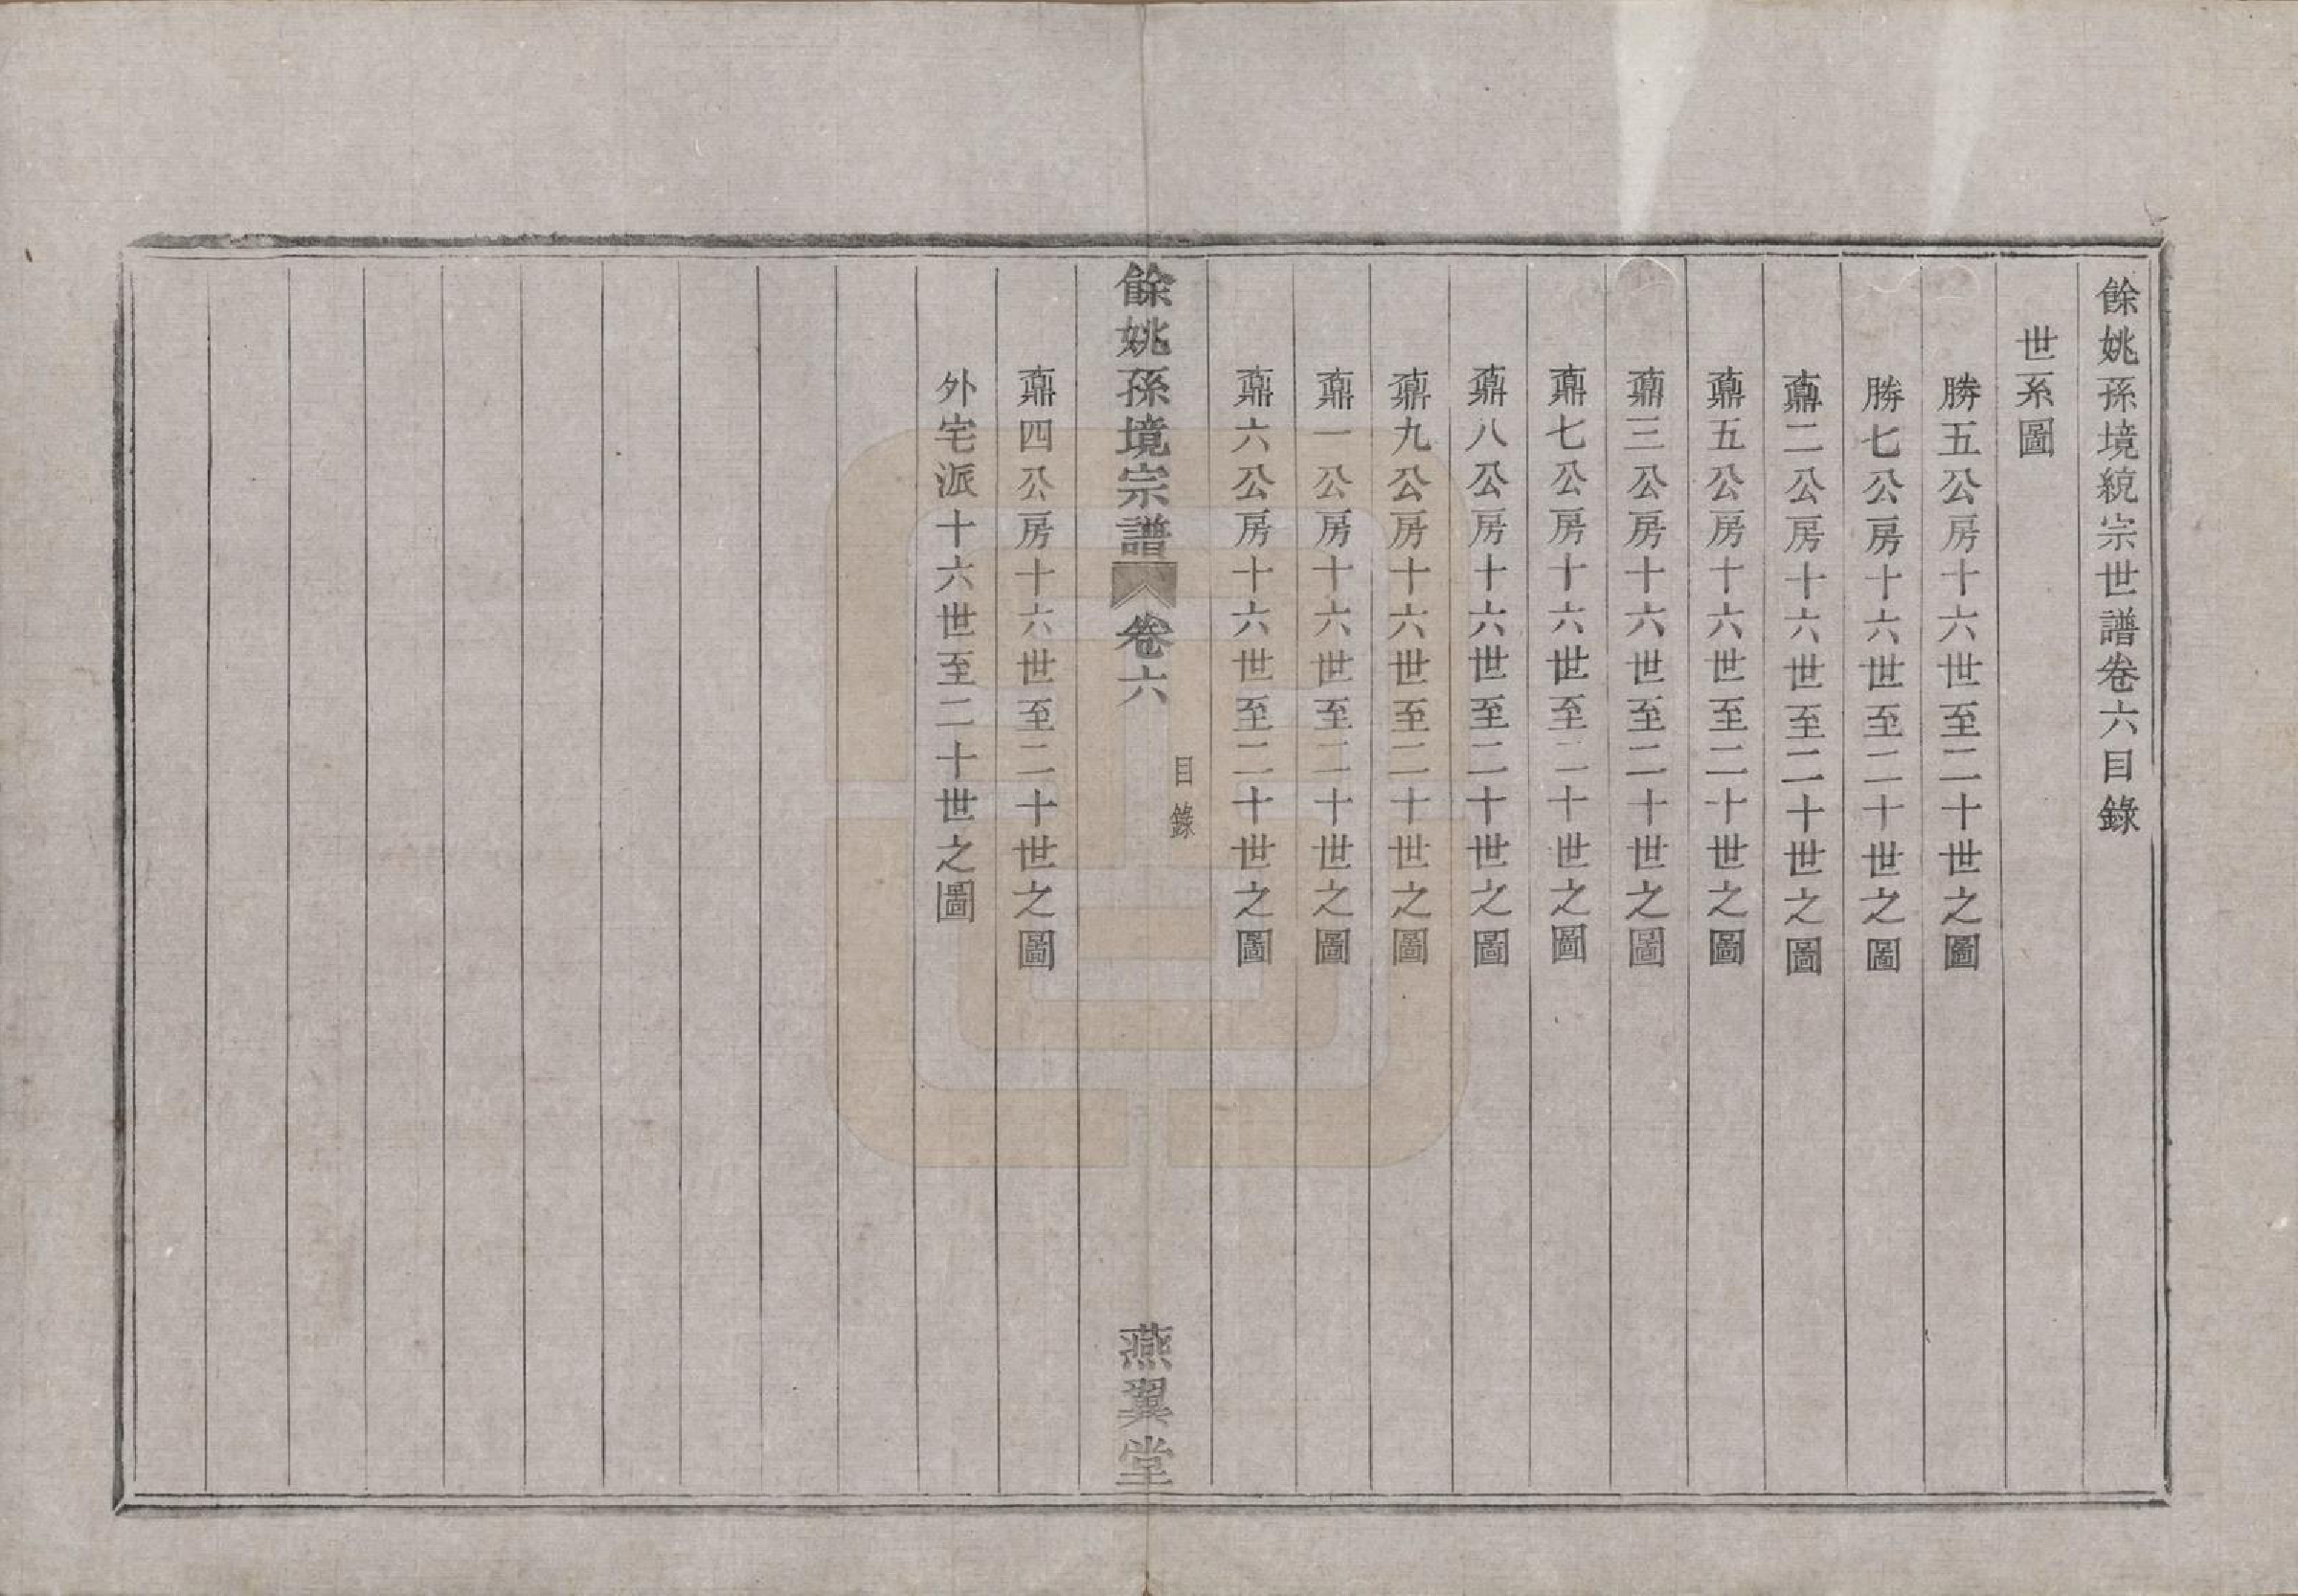 餘姚孫境統宗世譜卷六目錄
世系圖
勝五公房十六世至二十世之圖
勝七公房十六世至二十世之圖
鼒二公房十六世至二十世之圖
鼒五公房十六世至二十世之圖
鼒三公房十六世至二十世之圖
鼒七公房十六世至二十世之圖
鼒八公房十六世至二十世之圖
鼒九公房十六世至二十世之圖
鼒一公房十六世至二十世之圖
鼒六公房十六世至二十世之圖
餘姚孫境宗譜 卷六 目錄 燕翼堂
鼒四公房十六世至二十世之圖
外宅派十六世至二十世之圖